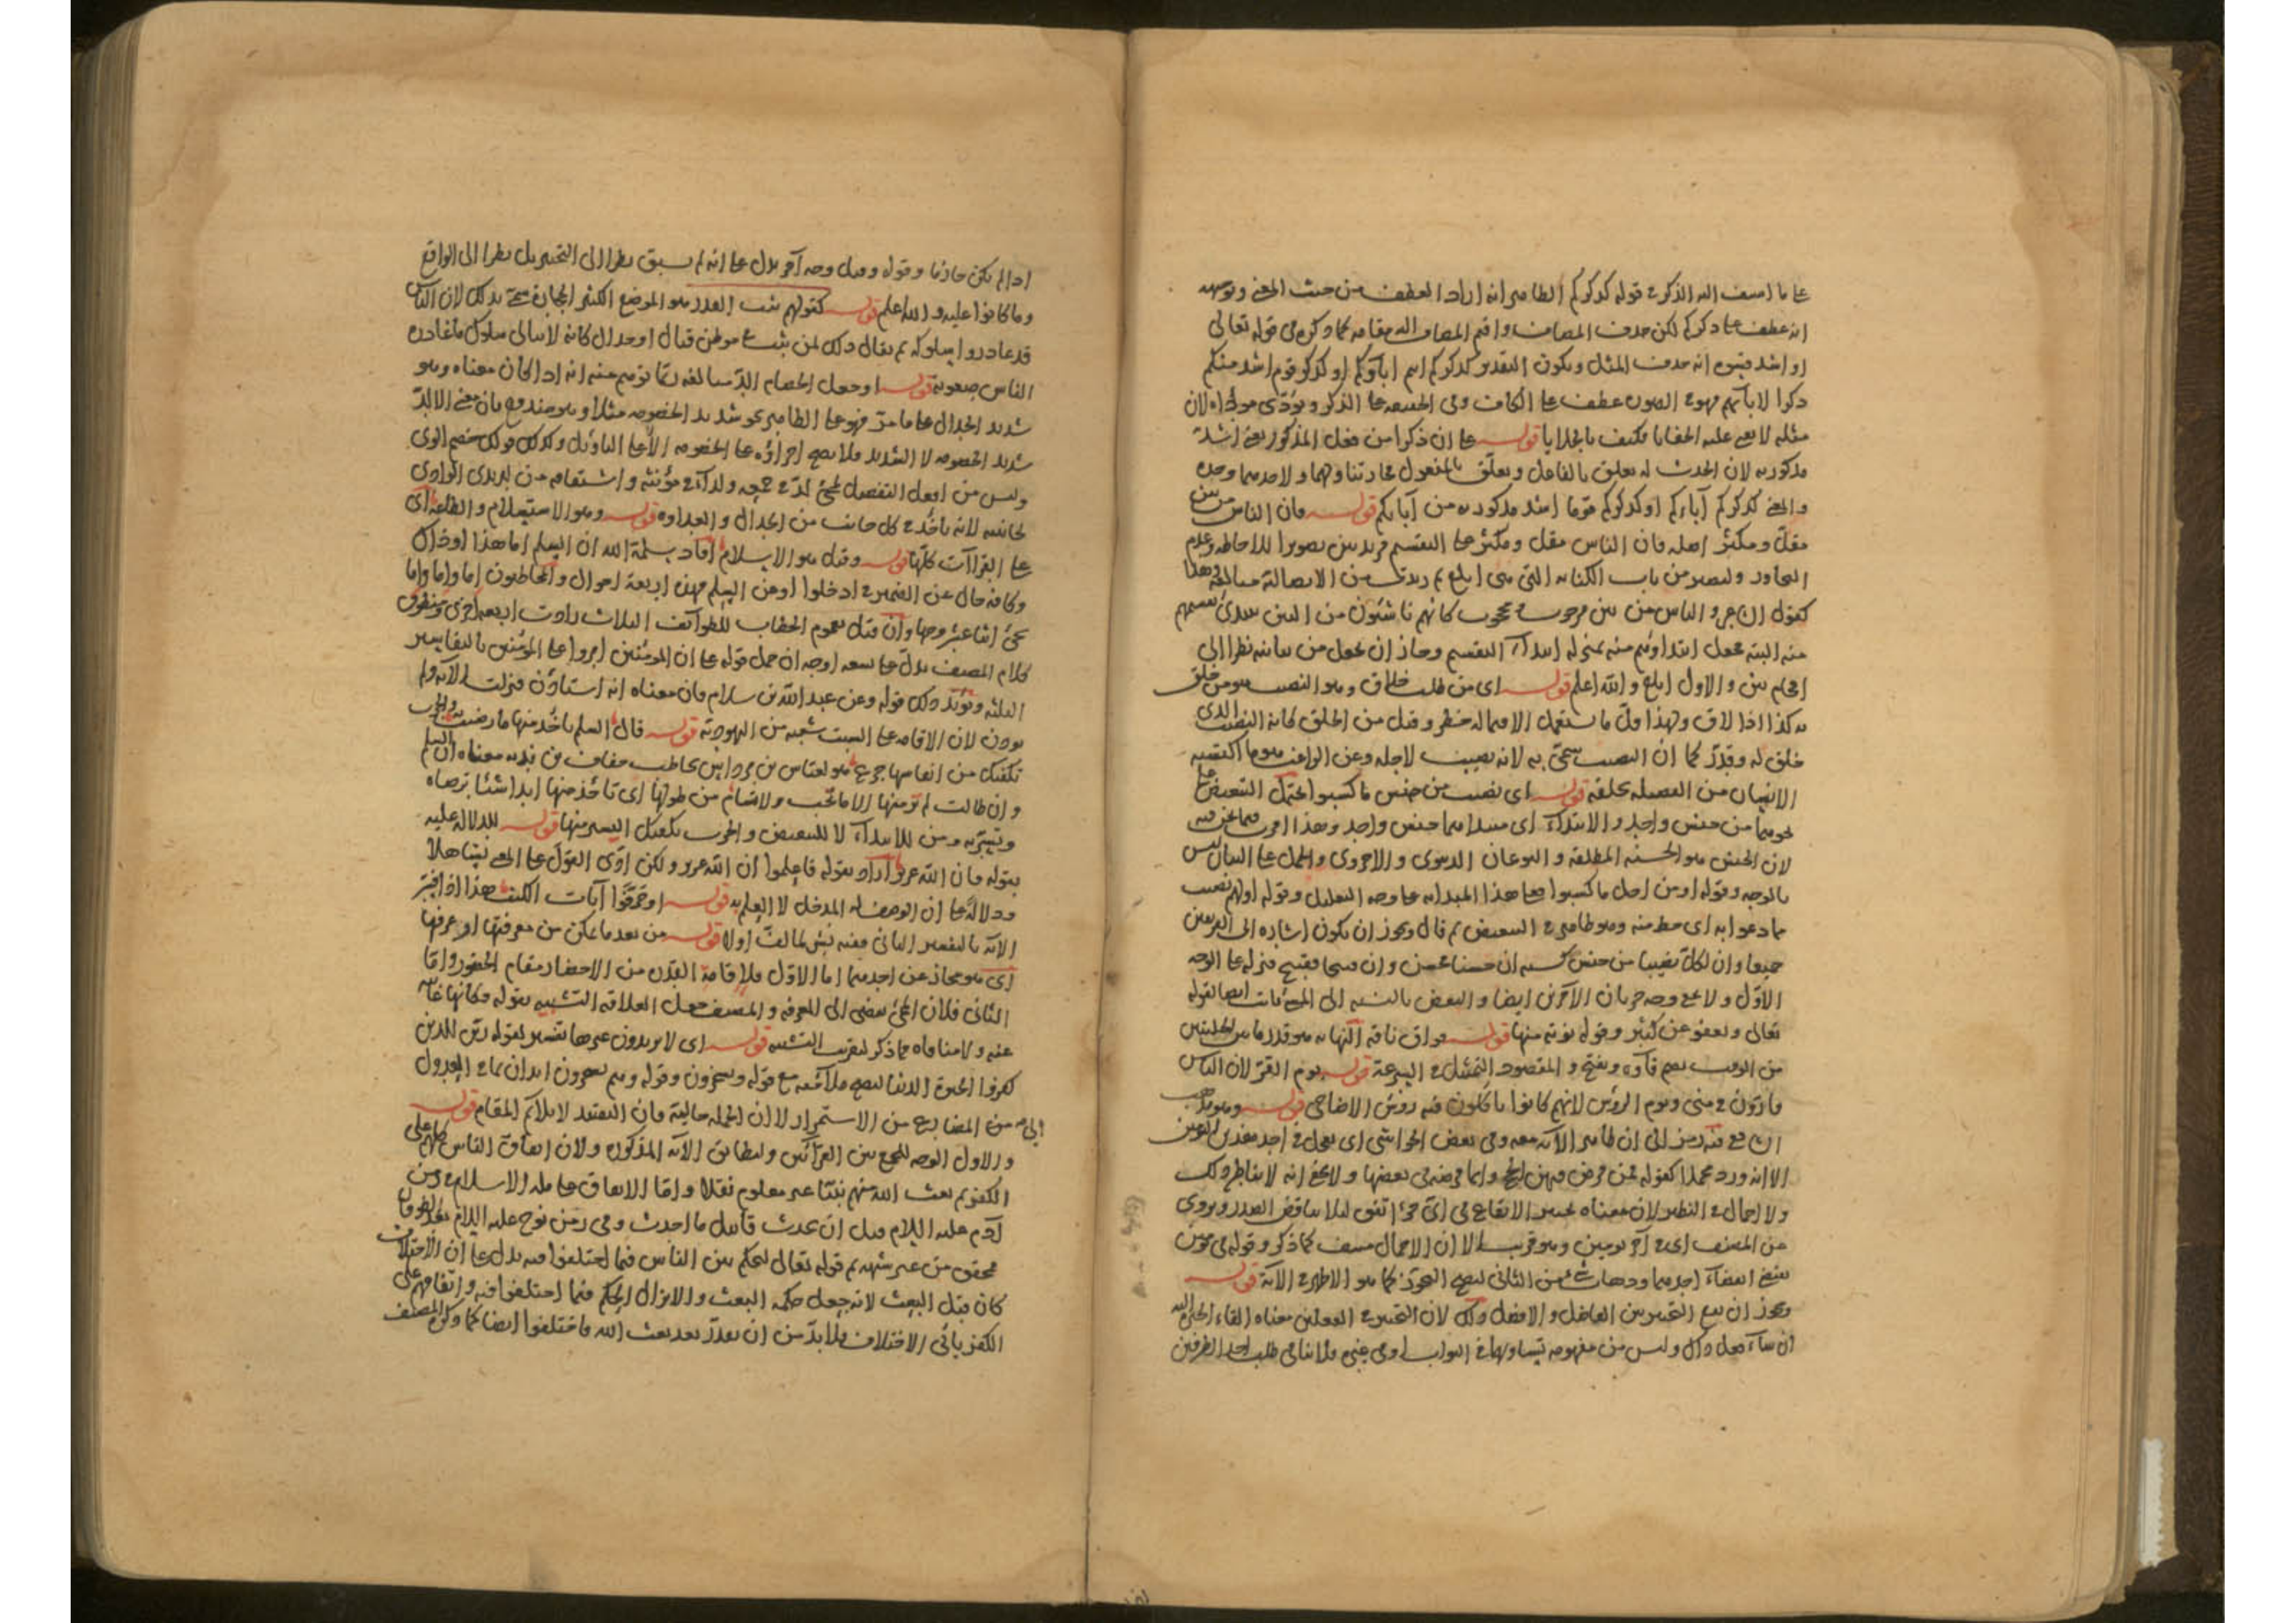 على ما اضيف اليه الذكر في قوله كذكركم الظاهر انه اراد العطف من حيث المعنى وتوجيهه
انه عطف على ذكركم لكن حذف المضاف واقيم المضاف اليه مقامه كما ذكره في قوله تعالى
او اشد قسوة انه حذف المثل ويكون التقدير كذكركم اباؤكم او كذكر قوم اشد منكم
ذكرا لابآئهم فهو في الصورة عطف على الكاف وفي الحقيقة على الذكر ويؤدى لان
مثله لا يعنى عليه بالجلايا قوله على ان ذكرا من فعل المذكور يعنى اشد
مذكورية لان الحدث له تعلق بالفاعل وتعلق بالمفعول وحده
والمعنى كذكركم آباءكم او كذكركم قوما اشد مذكورية من آبائكم قوله فان الناس من بين
مقل ومكثر اصله فان الناس مقل ومكثر على التقسيم فزيد بين تصويرا للاحاطة وعدم
التجاوز وليصير من باب الكناية التي هي ابلغ ثم زيدت من الاتصالية مبالغة وهذا
كقول الناس من بين مرجوب ومحجوب كانهم ناشئون من البين
منه البتة فجعل ابتداؤهم منه بمنزلة ابتداء التقسيم وجاز ان تجعل من بيانية نظرا الى
اقحام بين والاول ابلغ والله اعلم قوله اى من طلب خلاق وهو النصيب من خلق
به كذا اذا لاق ولهذا قل ما يستعمل الا فيما له خطر وقيل من الخلق كانه النصيب الذى
خلق له وقدر كما ان النصيب سمى به لانه نصيب لاجله وعن الراغب هو ما اكتسبه
الانسان من الفضيلة بخلقه قوله اى نصيب من جنس ما كسبوا يحتمل التبعيض على
نحو من جنس واحد والابتداء اى مبدأهما جنس واحد وهذا اقرب فيما نحن فيه
لان الجنس هو الحسنة المطلقة والنوعان الدنيوى والاخروى والحمل على البيان ليس
بالوجه وقوله او من اجل ما كسبوا على هذا المبدائية على وجه التعليل وقوله او لهم نصيب
مما دعوا به اى حظ منه وهو ظاهر في التبعيض ثم قال ويجوز ان يكون اشارة الى الفريقين
جميعا وان لكل نصيبا من جنس كسبه ان حسنا فحسن وان قبيحا فقبيح
الاول ولا يمنع وجه جريان الآخرين ايضا والبعض بالنسبة الى ايضا لقوله
تعالى ويعفو عن كثير وقوله نؤته منها قوله فواق ناقة النهاية هو قدر ما بين الحلبتين
من الوقت بضم فآؤه ويفتح والمقصود التمثيل في السرعة قوله يوم القر لان الناس
قارّون في منى ويوم الرؤس لانهم كانوا ياكلون فيه رؤس الاضاحى قوله وهو مذهب
الشافعي فيه رمز الى ان ظاهر الآية معه وفي بعض الحواشى اى يعجل في احد هذين اليومين
الا انه ورد مجملا كقوله فمن فرض فيهن الحج وانما فرضه في بعضها ولا يخفى انه لا يناظر ذلك
ولا اجمال في النظير لان معناه تخيير الايقاع في اى جزء اتفق لئلا يناقض الصدر ويروى
عن المصنف اى في آخر يومين وهو قريب الا ان الاجمال مسبق كما ذكر وقوله في يومين
يقتضى انقضاء احدهما ودخل شئ من الثانى ليصح التجوز كما هو الاظهر في الآية قوله
ويجوز ان يقع التخيير بين الفاضل والافضل وذلك لان التخيير في الفعلين معناه القاء الخيرة اليه
ان شاء فعل ذاك وليس من مفهومه تساويهما في الثواب او في غيره فلا ينافي طلب احد الطرفين
اذا لم يكن جازما وقوله وقيل وجه آخر يدل على انه لم يسبق نظرا الى التخيير بل نظرا الى الواقع
وما كانوا عليه والله اعلم قوله كقولهم ثبت الغدر هو الموضع الكثير الحجارة سمى بذلك لان الناس
قد غادروا سلوكه ثم يقال ذلك لمن يثبت في موطن قتال او جدال كانه لا يبالى سلوك ما غادره
الناس صعوبة قوله او جعل الخصام الد مبالغة ربما توهم منه انه اذا كان معناه وهو
شديد الجدال على ما مر فهو على الظاهر نحو شديد الخصومة مثلا وهو مندفع بان معنى الالد
شديد الخصومة لا الشديد فلا يصح اجراؤه على الخصومة الا على التاويل وكذلك قولك خصم الوى
وليس من افعل التفضيل لمجئ لدّ في جمعه ولدآء في مؤنثه واشتقاقه من لديدى الوادى
لجانبيه لانه ياخذ في كل جانب من الجدال والعداوة قوله وهو الاستسلام والطاعة اى
على القراآت كلها قوله وقيل هو الاسلام افاد سلمه الله ان السلم اما هذا او ذاك
وكافة حال عن الضمير في ادخلوا او من السلم فهذه اربعة احوال والمخاطبون اما واما واما
يجئ اثنا عشر وجها وان قيل بعموم الخطاب للطوائف الثلاث زادت اربعة اخرى ومنطوق
كلام المصنف يدل على تسعة اوجه ان حمل قوله على ان المؤمنين امروا على المؤمنين بالتفاسير
الثلثة ويؤيد ذلك قوله وعن عبد الله بن سلام فان معناه انه استاذن فنزلت الآية ولم
يؤذن لان الاقامة على السبت شعبة من اليهودية قوله قال السلم تاخذ منها ما رضيت به والحرب
تكفيك من انفاسها جرع هو لعباس بن مرداس يخاطب خفاف بن ندبة معناه ان السلم
وان طالت لم تر منها الا ما تحب ولا تسأم من طولها اى تاخذ منها ابدا شيئا ترضاه
ومن للابتداء لا للتبعيض والحرب يكفيك اليسير منها قوله للدلالة عليه
بقوله فان الله عزيز اراد بقوله فاعلموا ان الله عزيز ولكن ادى القول على المعنى تساهلا
ودلالة على ان الوصف له المدخل لا العلم به قوله او حرفوا آيات الكتب هذا اذا فسر
الآية بالتفسير الثانى ففيه نشر لما لف اولا قوله من بعد ما تمكن من معرفتها او عرفها
اى هو مجاز عن احدهما اما الاول فلاقامة القدرة من الاحضار مقام الحضور واما
الثانى فلان المجئ يفضى الى المعرفة والمصنف جعل العلاقة التشبيه بقوله فكانها غائبة
عنه ولا منافاة بما ذكر لتقريب التشبيه قوله اى لا يريدون غيرها تفسير لقوله زين للذين
كفروا الحيوة الدنيا ليصح ملائمته مع قوله ويسخرون وقوله وهم يسخرون ايذان بما في العدول
اليه من المضارع من الاستمرار لا ان الجملة حالية فان التقييد لا يلائم المقام قوله
والاول الوجه للجمع بين القرآئتين وليطابق الآية المذكورة ولان اتفاق الناس كلهم على
الكفر ثم بعث الله منهم نبيا غير معلوم نقلا واما الاتفاق على ملة الاسلام في زمن
آدم عليه السلام قبل ان يحدث قابيل ما احدث وفى زمن نوح عليه السلام بعد الطوفان
محقق من غير شبهة ثم قوله تعالى ليحكم بين الناس فيما اختلفوا فيه يدل على ان الاختلاف
كان قبل البعث لانه جعل حكمة البعث والانزال الحكم فيما اختلفوا فيه واتفاقهم على
الكفر يأبى الاختلاف فلا بد من ان يقدر بعد بعث الله فاختلفوا ايضا كما ذكره المصنف